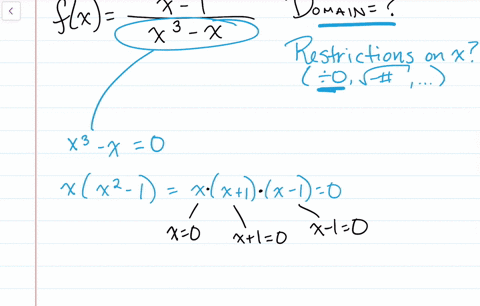 f(x) = x - 1 / x³ - x
DOMAIN = ?
Restrictions on x?
(÷0, √-#, ...)
x³ - x = 0
x(x² - 1) = x·(x+1)·(x-1) = 0
x=0 x+1=0 x-1=0